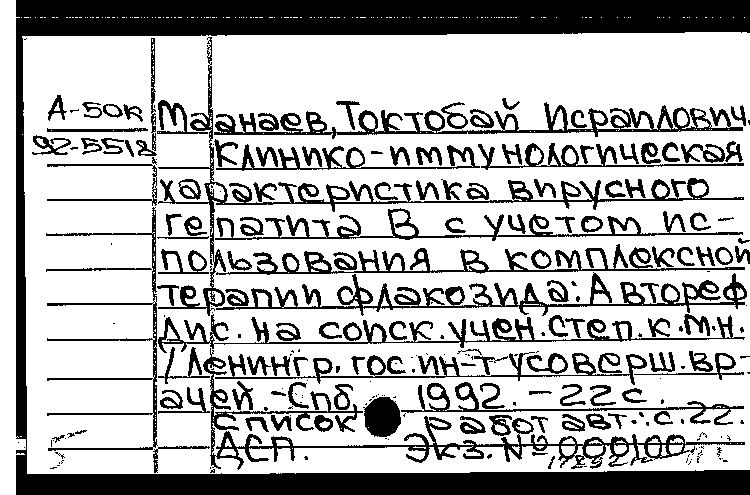 А-50к
92-5518
Маанаев, Токтобай Исраилович.
Клинико-иммунологическая
характеристика вирусного
гепатита В с учетом ис-
пользования в комплексной
терапии флакозида: Автореф
дис. на соиск. учен. степ. к.м.н.
/Ленингр. гос. ин-т усоверш. вр-
ачей. - Спб, 1992. - 22 с.
Список работ авт.: с. 22.
ДСП. Экз. № 000100
5